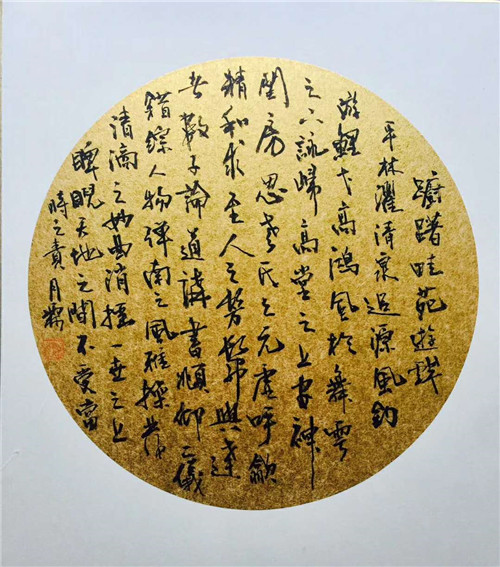 蹰躇畦苑遊戏
平林濯清泉追凉风釣
游鯉弋高鴻风於舞雩
之下詠歸高堂之上安神
閨房思老氏之元虚呼歙
精和求至人之髣髴與達
者數子論道講書俯仰二儀
錯綜人物弹南之風雅操发
清商之妙曲消摇一世之上
睥睨天地之間不受當
時之責月